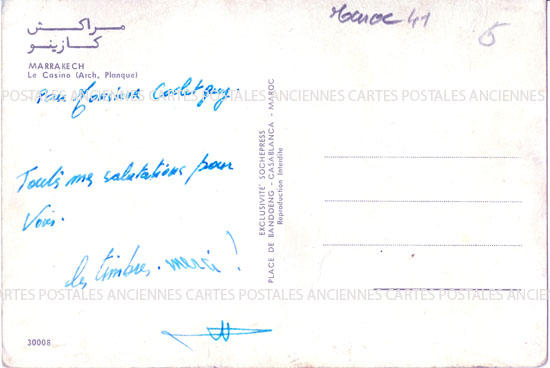 مراكش
كازينو
MARRAKECH
Le Casino (Arch, Planque)
Maroc 41
5
Pour Monsieur
Touts mes salutations pour
Vous.
les timbres. merci!
EXCLUSIVITE' SOCHEPRESS
PLACE DE BANDOENG - CASABLANCA - MAROC
Reproduction Interdite
CARTES POSTALES ANCIENNES CARTES POSTALES ANCIENNES CARTES POSTALES ANCIENNES
CARTES POSTALES ANCIENNES CARTES POSTALES ANCIENNES CARTES POSTALES ANCIENNES
30008